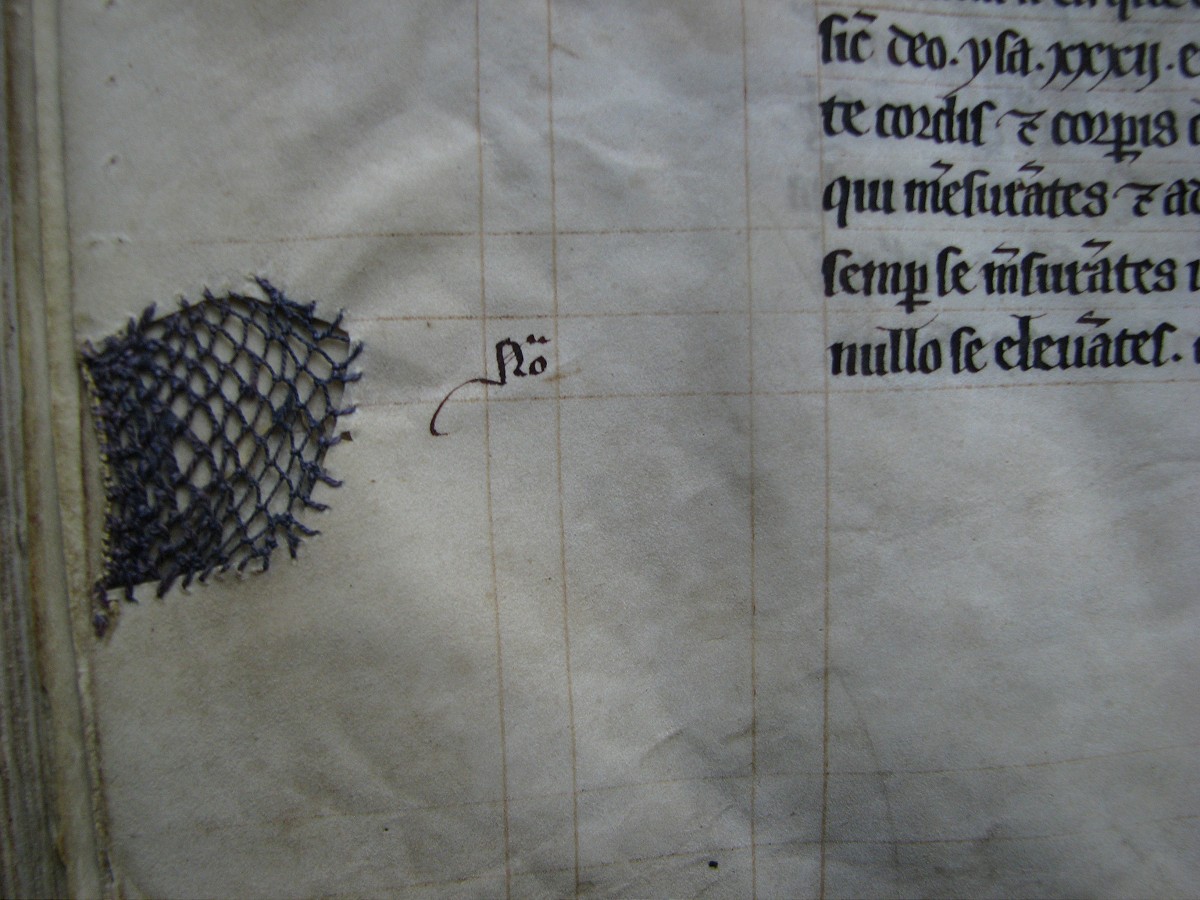 sic̄ deo. ysa. xxxij. e
te cordis ⁊ corꝑis
qui m̄esurātes ⁊ ad
semꝑ se m̄surātes
nullo se eleuātes.
No